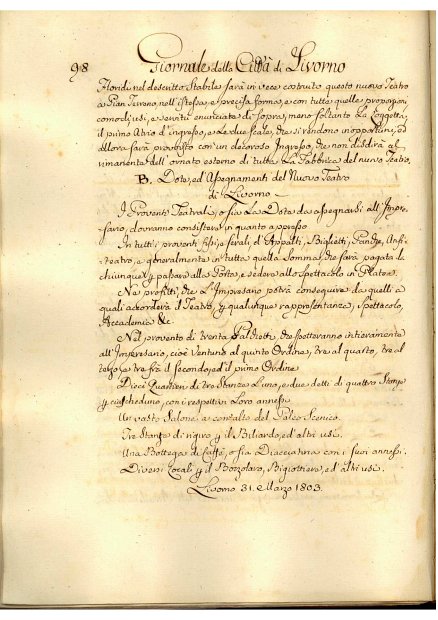 98
Giornale della Città di Livorno
Floridi nel descritto Stabile sarà in vece costruito questo nuovo Teatro
a Pian Terreno, nell'istessa, e precisa forma, e con tutte quelle proporzioni,
comodi, usi, e servitù enunciate di sopra, meno soltanto la Loggetta,
il primo Atrio d'ingresso, e le due scale, che si rendono inopportuni, ed
allora sarà provvisto con un decoroso Ingresso, che non disdirà al
rimanente dell'ornato esterno di tutta la Fabbrica del nuovo Teatro.
B. Dote, ed Assegnamenti del Nuovo Teatro
di Livorno
I Proventi Teatrali, o sia La Dote da assegnarsi all'Impre-
sario, dovranno consistere in quanto appresso
In tutti i proventi fissi, serali, d'Appalti, Biglietti, Panche, Anfi-
teatro, e generalmente in tutta quella Somma, che sarà pagata da
chiunque p passare alla Porta, e sedere allo spettacolo in Platea.
Ne profitti, che L'Impresario potrà conseguire da quelli a
quali accorderà il Teatro, p qualunque rappresentanza, spettacolo,
Accademia &c.
Nel provento di trenta Palchetti, che spetteranno intieramente
all'Impresario, cioè Ventuno al quinto Ordine, tre al quarto, tre al
terzo, e tre frà il secondo, ed il primo Ordine
Dieci Quartieri di tre Stanze L'uno, e due detti di quattro Stanze
p ciascheduno, con i respettivi Loro annessi
Un vasto Salone a contatto del Palco Scenico.
Tre Stanze di rigiro p il Biliardo, ed altri usi.
Una Bottega di Caffè, o sia Diacciatina con i suoi annessi.
Diversi Locali p il Bozzolaro, Bigiottiere, ed altri usi.
Livorno 31. Marzo 1803.